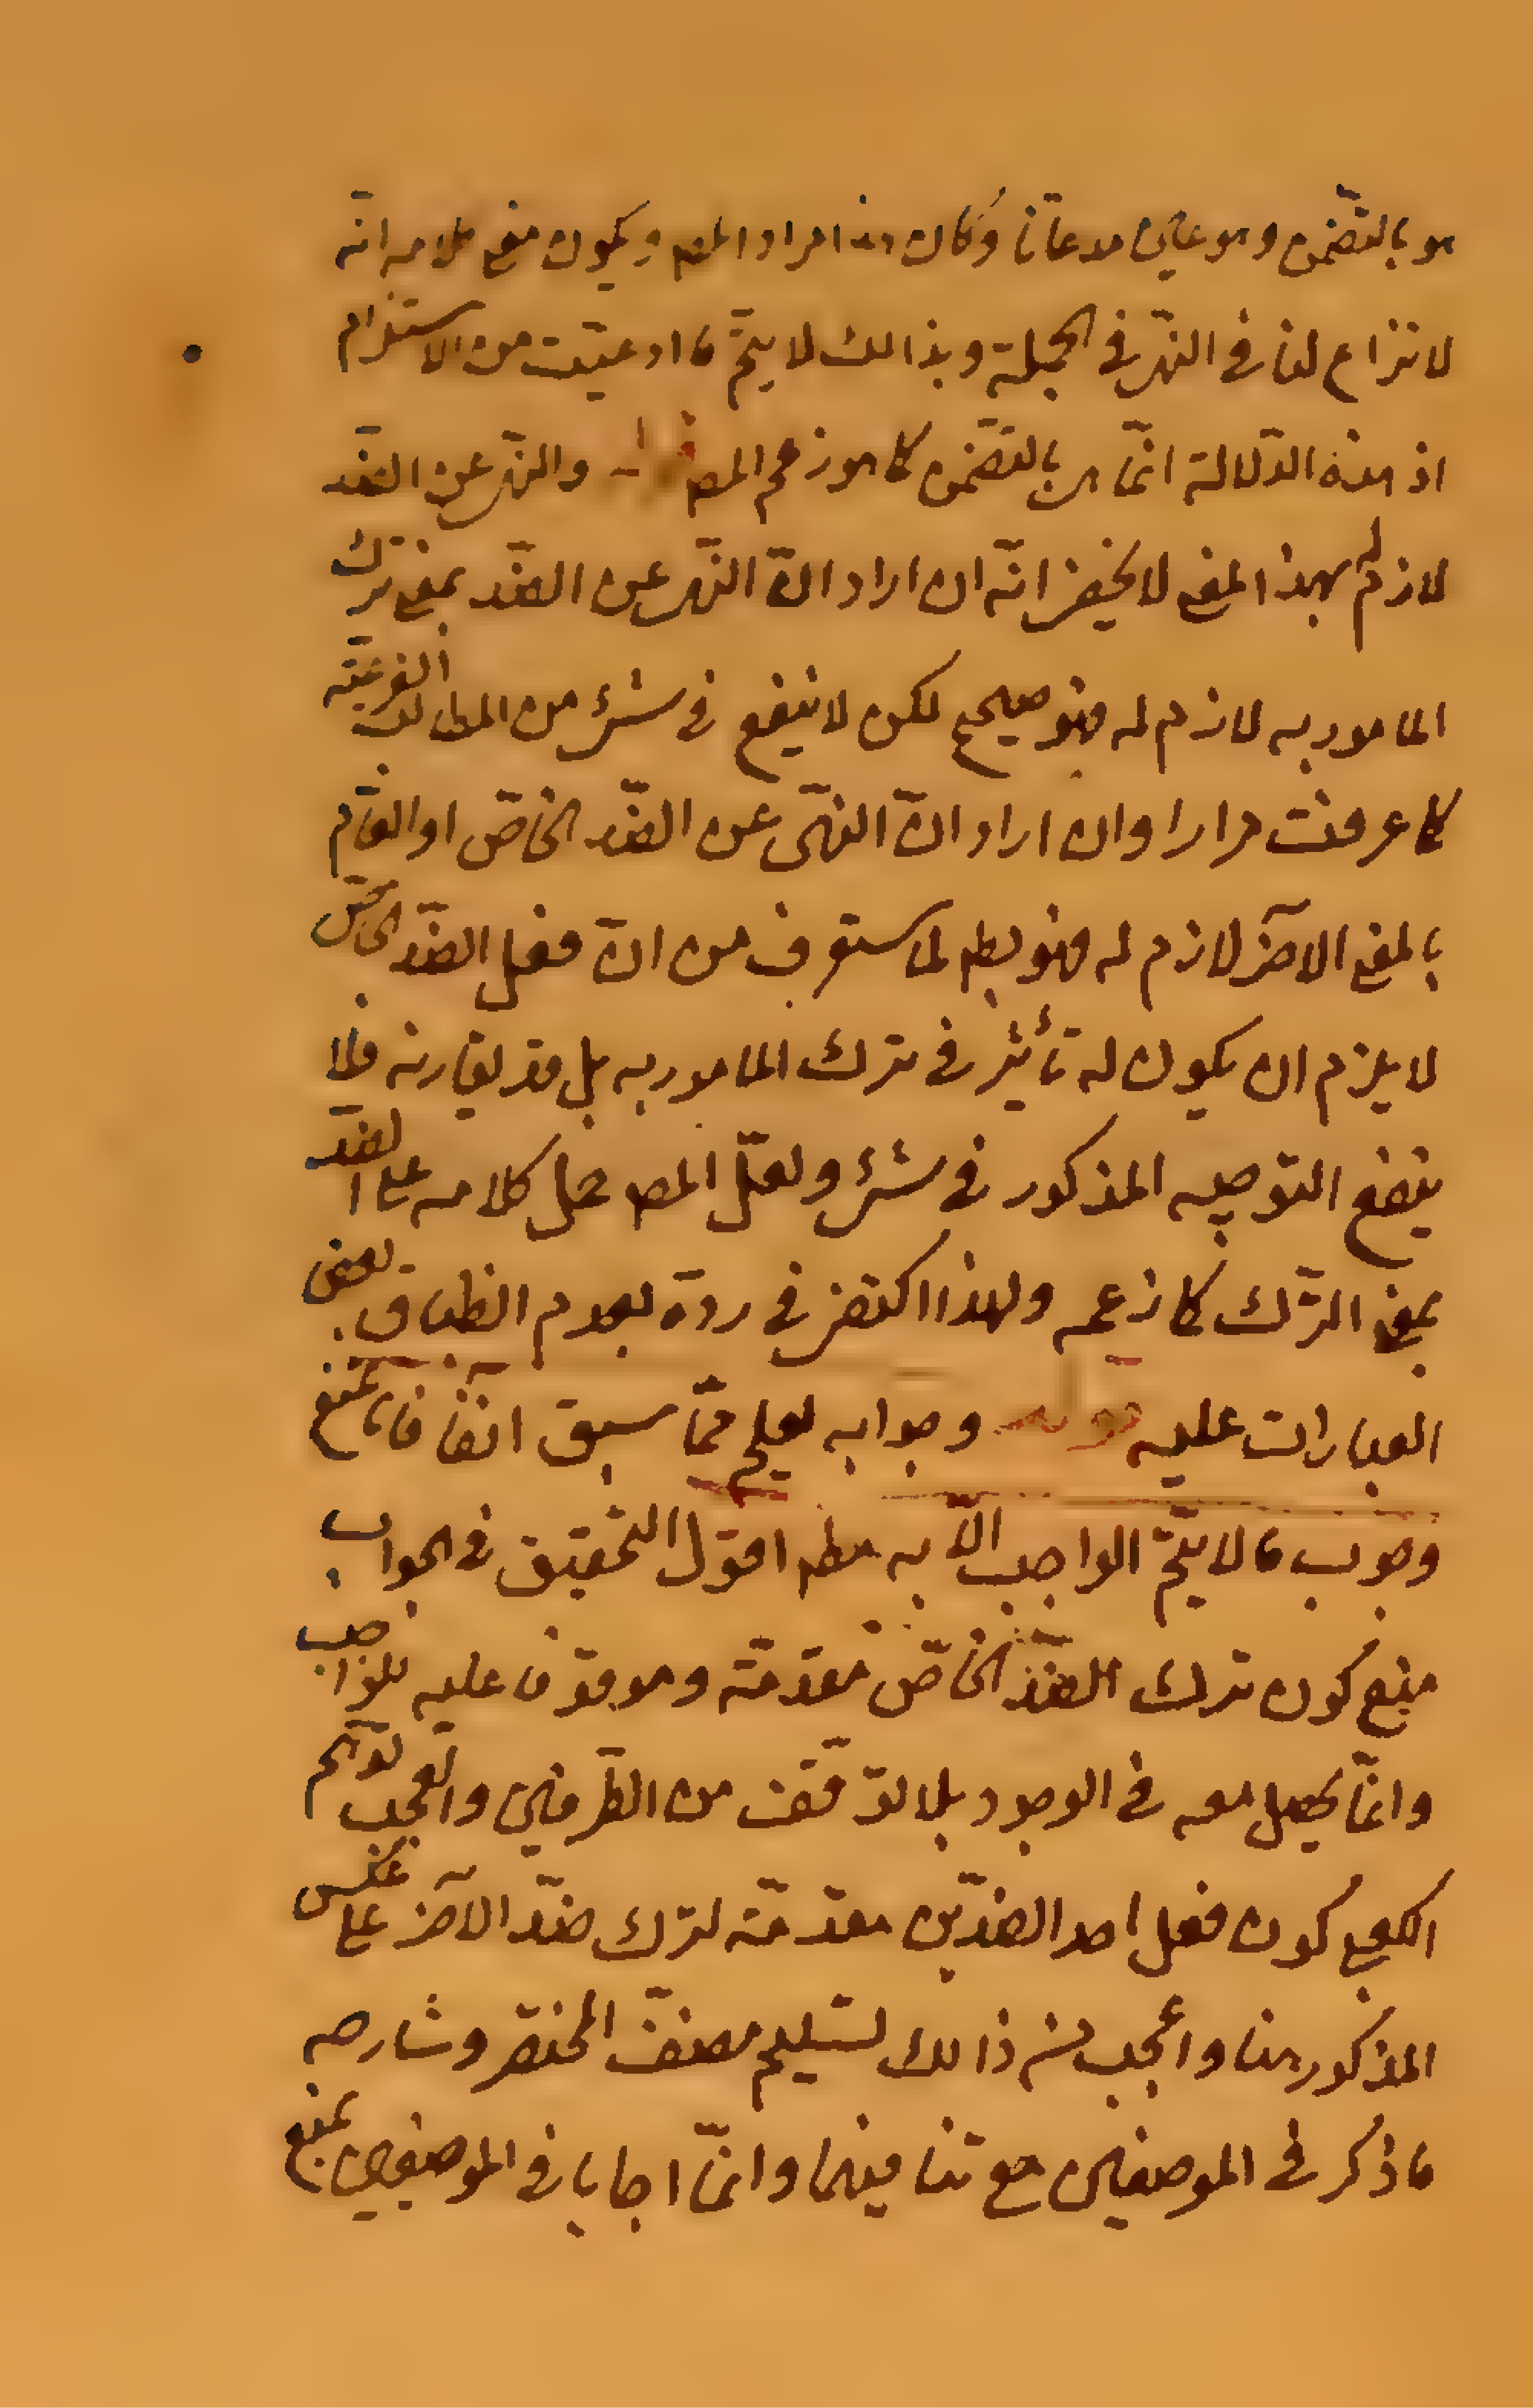 هو بالتضمّن وهو عين مدعانا وكان هذا مراد المصم ويكون معنى كلامه انّه
لا نزاع لنا فى النّهى فى الجملة وبذالك لا يتمّ ما ادعيت من الاستلزام
اذ هذه الدّلالة انّما هى بالتضمّن كما هو زعم المصم والنّهى عن الضّد
لازم له بهذا المعنى لا يخفى انّه ان اراد انّ النّهى عن الضّد بمعنى ترك
المامور به لازم له فهو صحيح لكن لا ينفع فى شئ من المطالب الفرعيّة
كما عرفت مرارا وان اراد انّ النّهى عن الضّد الخاصّ او العامّ
بالمعنى الآخر لازم له فهو بطم لما ستعرف من انّ فعل الضّد الخاصّ
لا يلزم ان يكون له تأثير فى ترك المامور به بل قد يقارنه فلا
ينفع التّوجيه المذكور فى شئ ولعلّ المصم حمل كلامه على الضدّ
بمعنى الترّك كما زعمه ولهذا اكتفى فى ردّه بعدم انطباق بعض
العبارات عليه قوله وجوابه يعلم ممّا سبق آنفا فانا نمنع
وجوب ما لا يتمّ الواجب الّا به مطم اقول التّحقيق فى الجواب
منع كون ترك الضّد الخاصّ مقدمّة وموقوفا عليه للواجب
وانّما يحصل معه فى الوجود بلا توقّف من الطّرفين والعجب توهّم
الكعبى كون فعل احد الضدّين مقدمّة لترك ضدّ الآخر على عكس
المذكور هنا واعجب من ذالك تسليم مصنّف المختصر وشارحه
ما ذكر فى الموضعين مع تنافيهما وانّما اجابا فى الموضعين بمنع